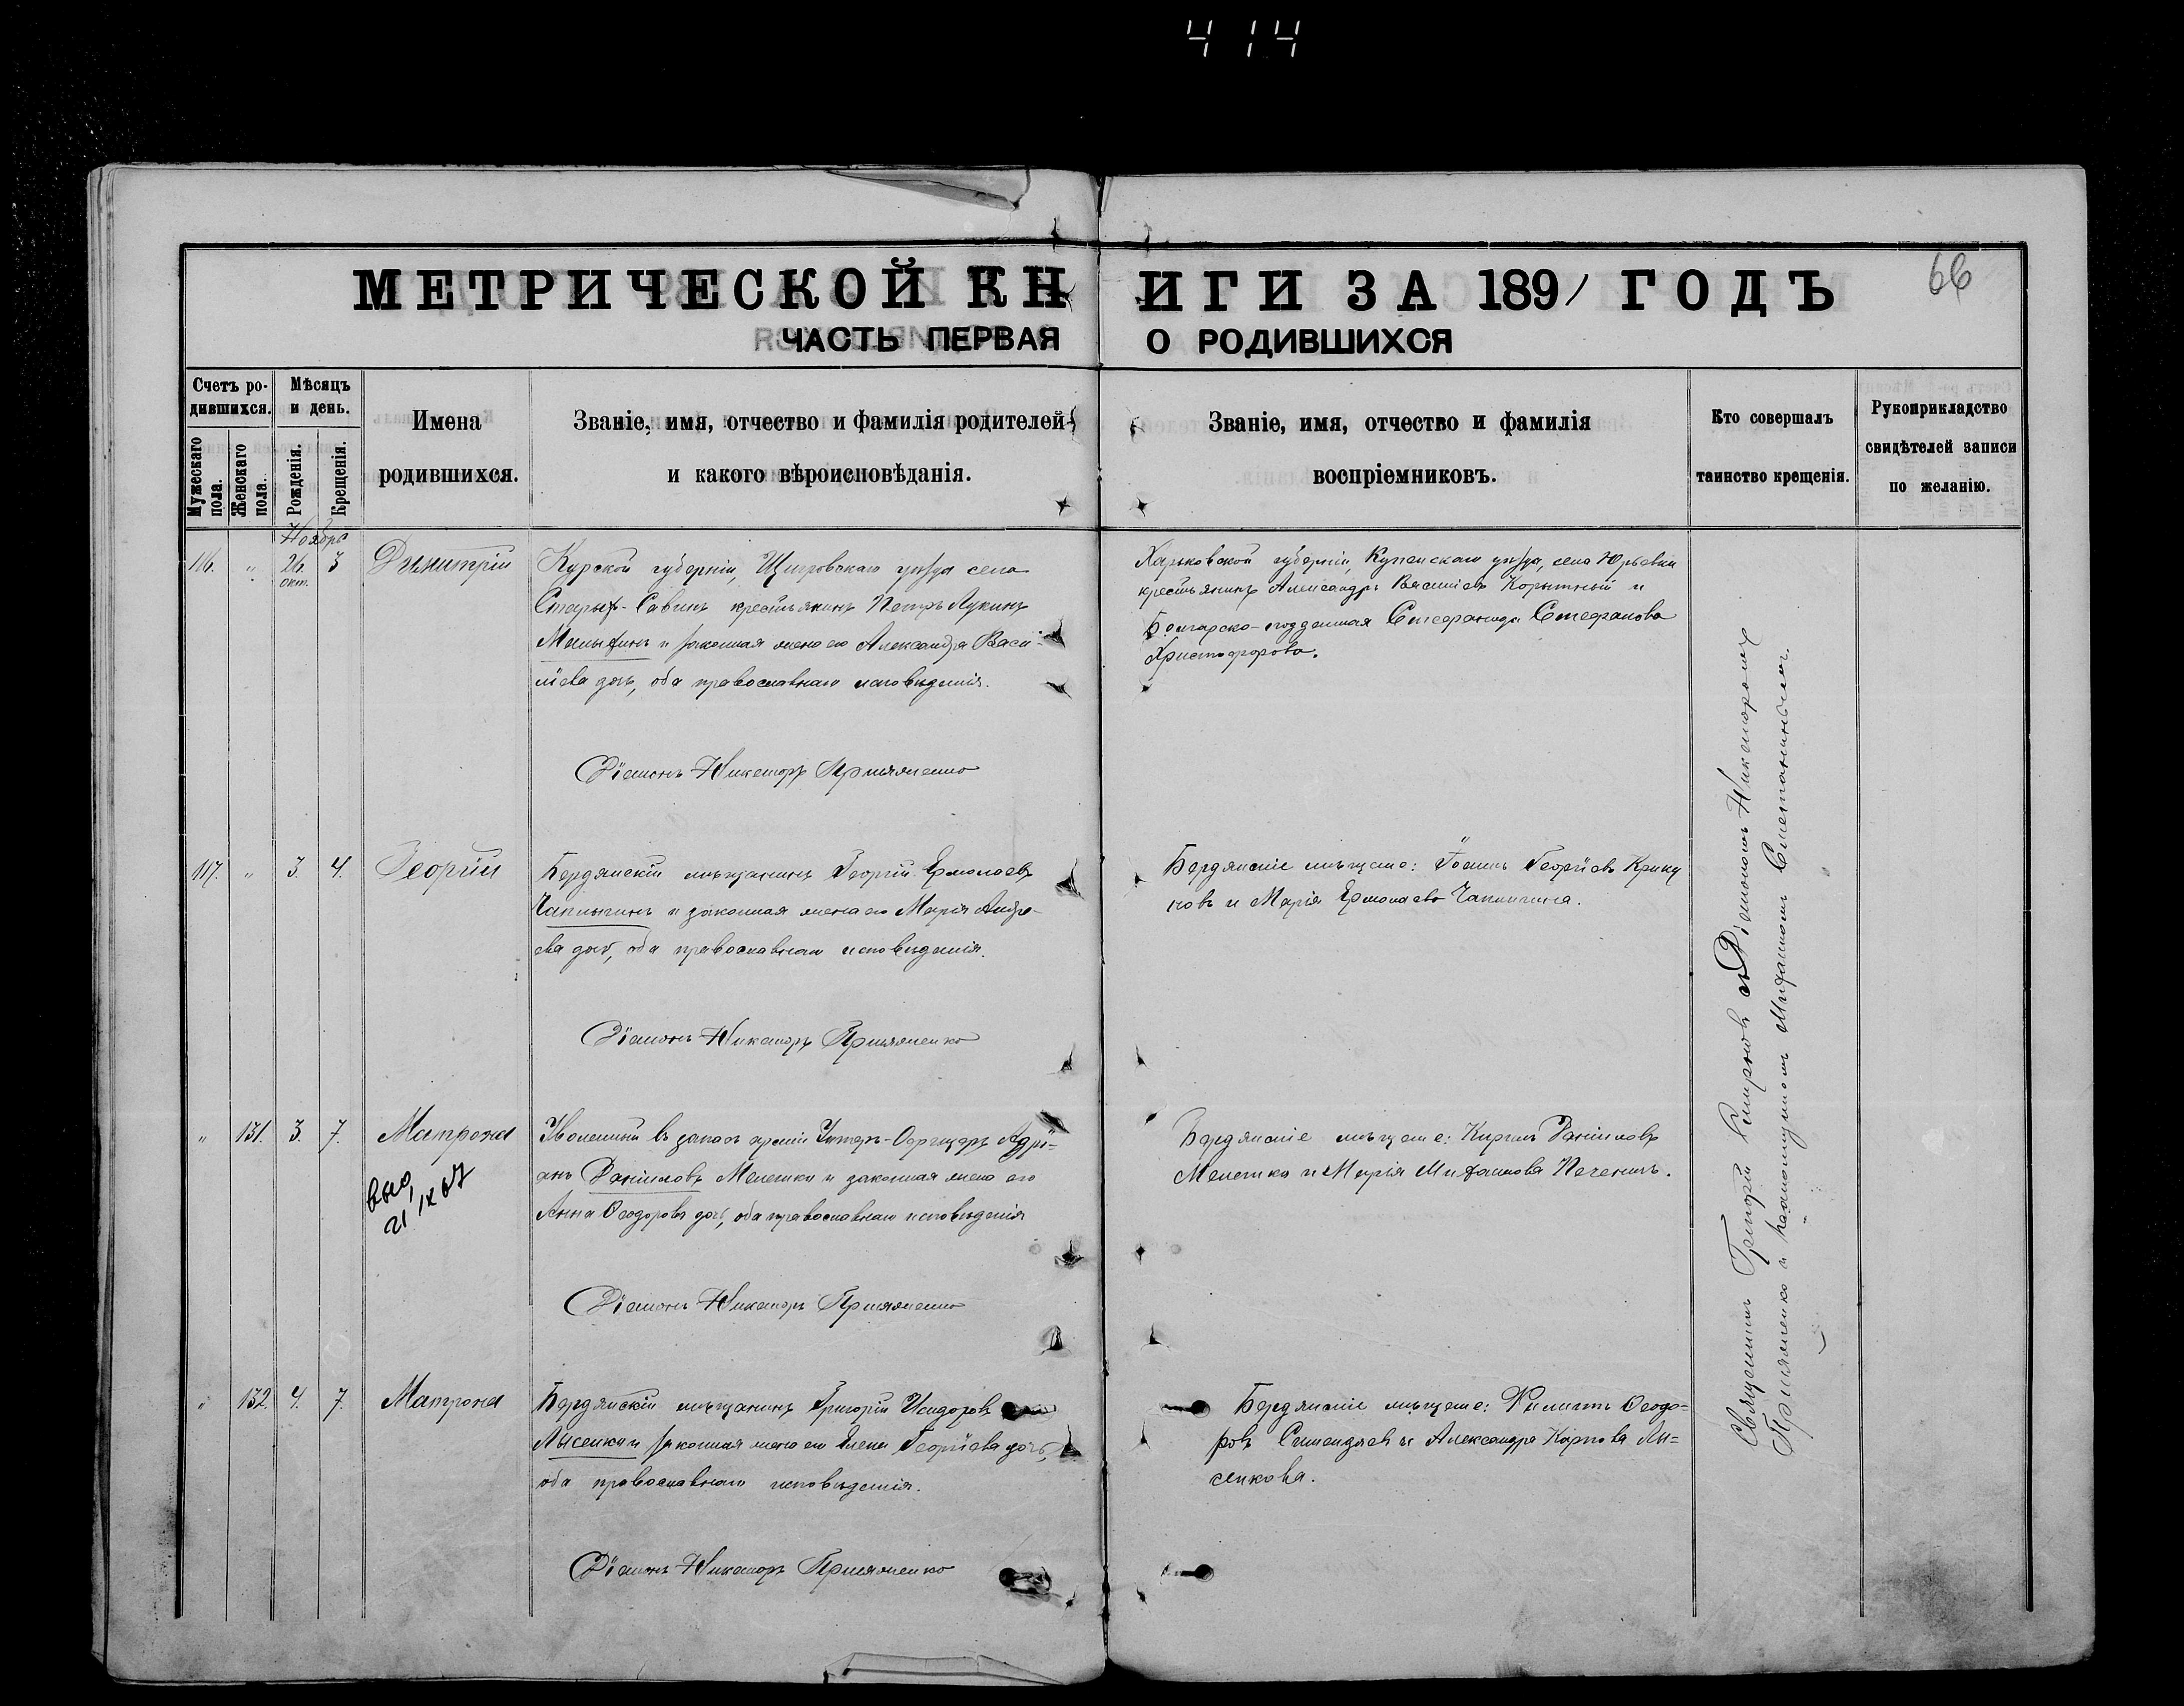 414
66
МЕТРИЧЕСКОЙ КНИГИ ЗА 1891 ГОДЪ
ЧАСТЬ ПЕРВАЯ О РОДИВШИХСЯ
Счетъ ро-
дившихся.
Мужескаго
пола.
Женскаго
пола.
Мѣсяцъ
и день.
Рожденія.
Крещенія.
Имена
родившихся.
Званіе, имя, отчество и фамилія родителей
и какого вѣроисповѣданія.
Званіе, имя, отчество и фамилія
воспріемниковъ.
Кто совершалъ
таинство крещенія.
Рукоприкладство
свидѣтелей записи
по желанію.
Ноябрь
116. " 26. окт. 3 Димитрій
Курской губерніи, Щигровскаго уѣзда села
крестьянинъ Петръ Лукинъ
и законная жена его Александра Васи-
ліева дочь, оба православнаго исповѣданія.
Діаконъ Никаноръ
Харьковской губерніи, Купянскаго уѣзда, села Юрьевки
крестьянинъ Александръ Василіевъ Корытный и
Болгарско-подданная Стефанида Стефанова
Христофорова.
117. " 3. 4. Георгій
Бердянскій мѣщанинъ Георгій Ермолаевъ
Чаплыгинъ и законная жена его Марія Андре-
ева дочь, оба православнаго исповѣданія.
Діаконъ Никаноръ
Бердянскіе мѣщане: Іоаннъ Георгіевъ
и Марія Ермолаева Чаплыгина.
" 131. 3. 7. Матрона
Уволенный въ запасъ арміи Унтеръ-Офицеръ Адрі-
анъ Даніиловъ Мелешко и законная жена его
Анна Ѳеодорова дочь, оба православнаго исповѣданія
Діаконъ Никаноръ
Бердянскіе мѣщане: Кириллъ Даніиловъ
Мелешко и Марія Михаилова
" 132. 4. 7. Матрона
Бердянскій мѣщанинъ Григорій Исидоровъ
Лысенко и законная жена его Елена Георгіева дочь,
оба православнаго исповѣданія.
Діаконъ Никаноръ
Бердянскіе мѣщане: Филиппъ Ѳеодо-
ровъ и Александра Карпова Лы-
сенкова.
Священникъ Григорій съ Діакономъ Никаноромъ
и псаломщикомъ Михаиломъ